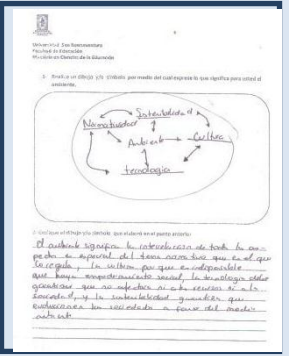 Universidad San Buenaventura
Facultad de Educación
Maestría en Ciencias de la Educación
Realice un dibujo y/o símbolo por medio del cual exprese lo que significa para usted el ambiente.
Sostenibilidad
Normatividad
Ambiente
Cultura
tecnología
2. Explique el dibujo y/o símbolo que elaboró en el punto anterior:
El ambiente significa la interrelación de todo
en especial del tema normativo que es el que
lo regula, la cultura por que es indispensable
que haya social, la tecnología debe
garantizar que no afectara ni a los recursos ni a la
sociedad, y la sostenibilidad garantiza que
la sociedad a favor del medio
ambiente.